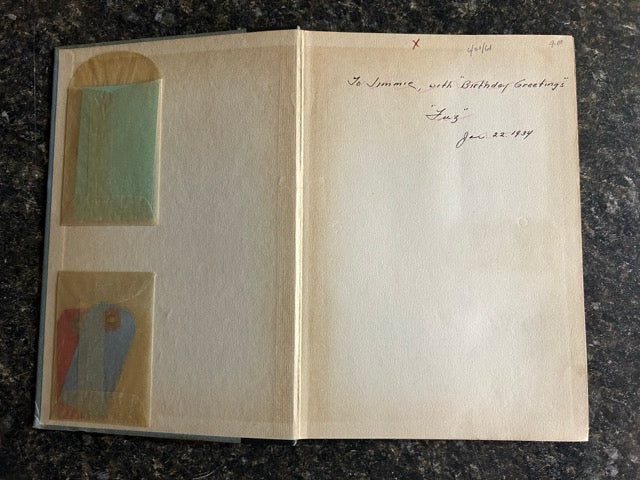 x
To Jimmie, with "Birthday Greetings"
"Fuz"
Jan. 22. 1934